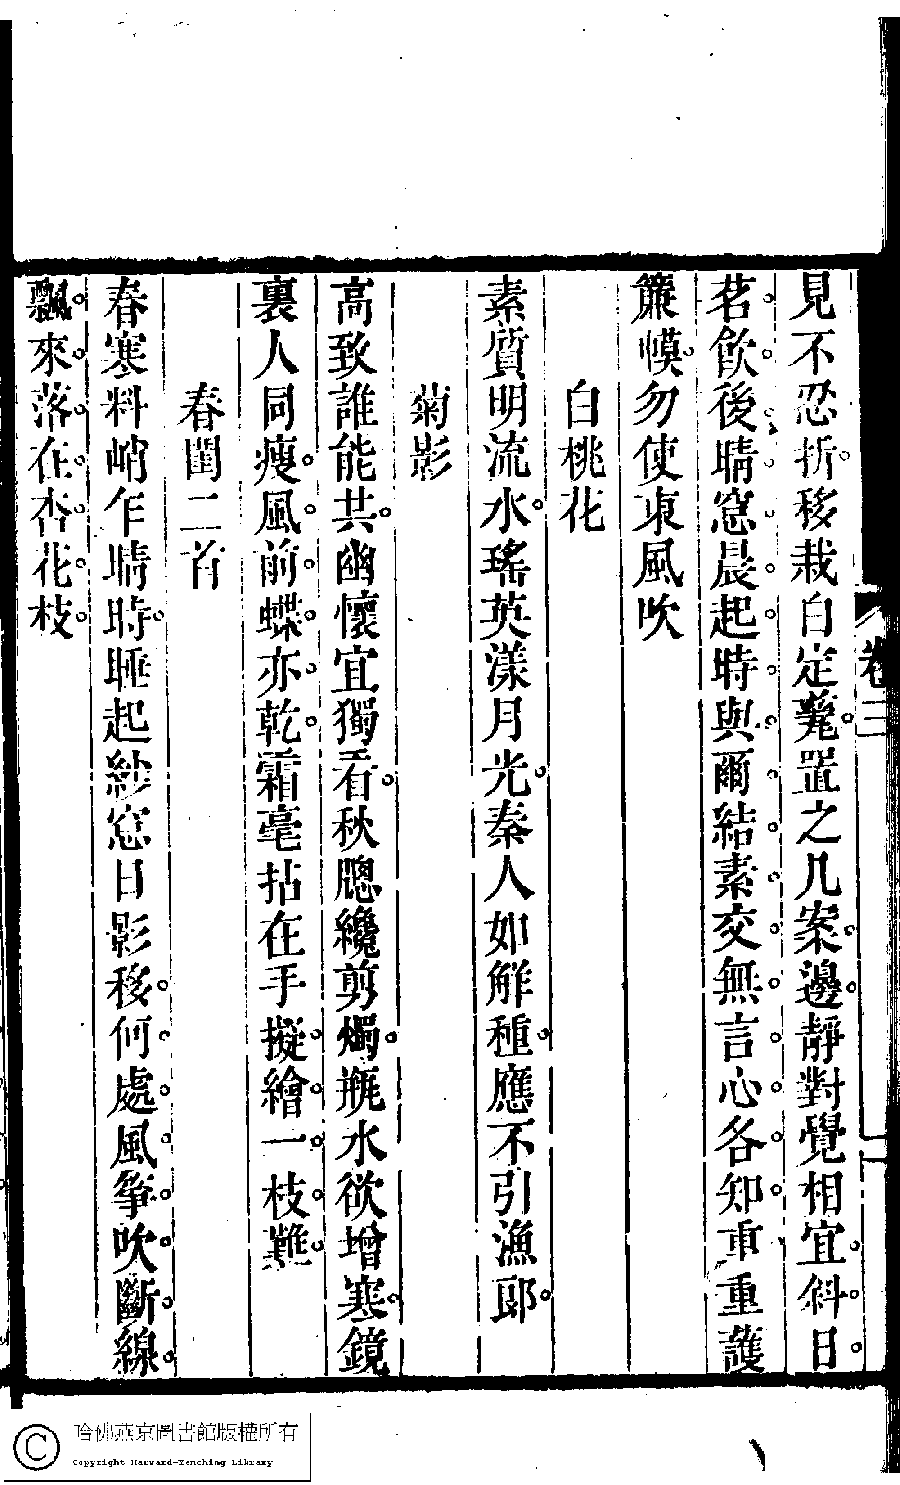 見不忍折移栽白定甆置之几案邊靜對覺相宜斜日
茗飲後晴窓晨起時與爾結素交無言心各知重重護
簾幙勿使東風吹
白桃花
素質明流水瑤英漾月光秦人如觧種應不引漁郎
菊影
高致誰能共幽懷宜獨看秋牕纔剪燭瓶水欲增寒鏡
裏人同瘦風前蝶亦乾霜毫拈在手擬繪一枝難
春閨二首
春寒料峭乍晴時睡起紗窓日影移何處風筝吹斷線
飄來落在杏花枝
卷三
哈佛燕京圖書館版權所有
Copyright Harvard-Yenching Library